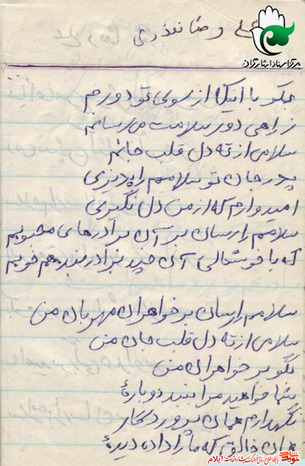 علی رضا نقدی
مرکز اسناد ایثارگران
مگو با اینکه از سوی تو دورم
ز راهی دور سلامت می‌رسانم
سلامی از ته دل قلب جانم
پدر جان تو سلامم را پذیری
امیدوارم که از من دل نگیری
سلامم را رسان بر آن برادرهای محبوبم
که با خوشحالی آن چند برادر بنده هم خوبم
سلامم را رسان بر خواهران مهربان من
سلامی از ته دل قلب جان من
بگو بر خواهران من
شما خواهید مرا بینید دوباره
نگهدارم همان پروردگار
آن خالق که ما را داده دیده